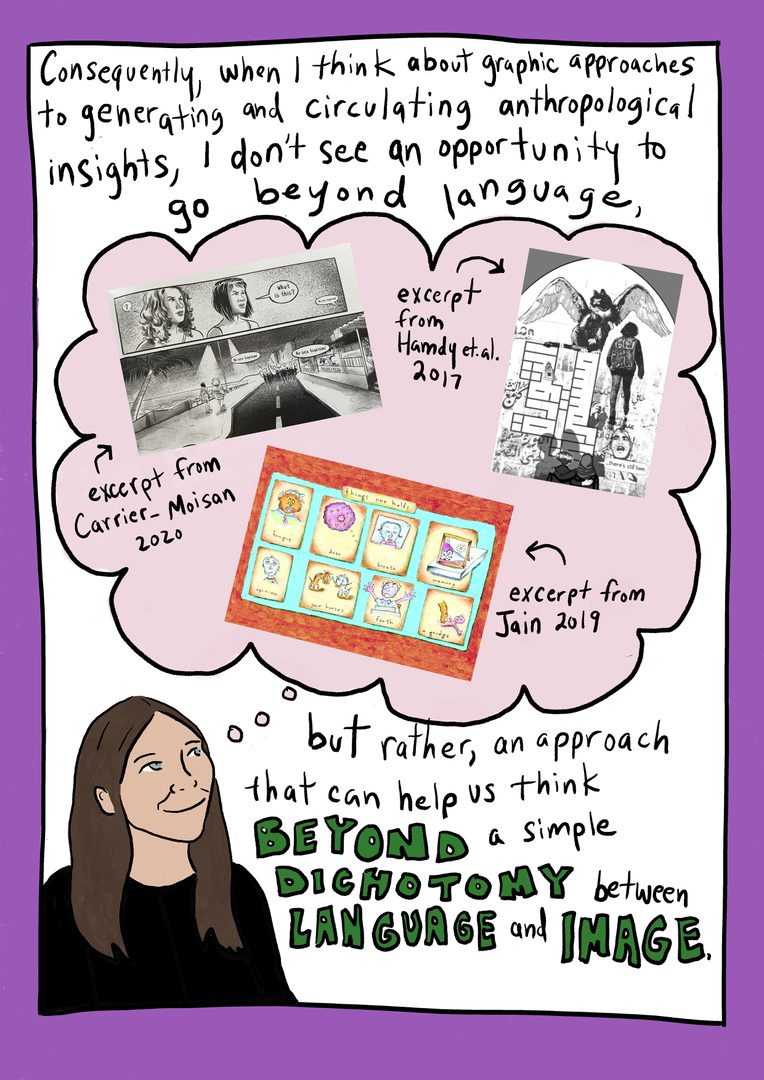 Consequently, when I think about graphic approaches
to generating and circulating anthropological
insights, I don't see an opportunity to
go beyond language,
?
What
is this?
No sex tourism!
No sex tourism!
excerpt
from
Hamdy et.al.
2017
...there's still time.
excerpt from
Carrier-Moisan
2020
things one holds
tongue
dear
breath
memory
opinion
your horses
forth
a grudge
excerpt from
Jain 2019
but rather, an approach
that can help us think
BEYOND a simple
DICHOTOMY between
LANGUAGE and IMAGE.